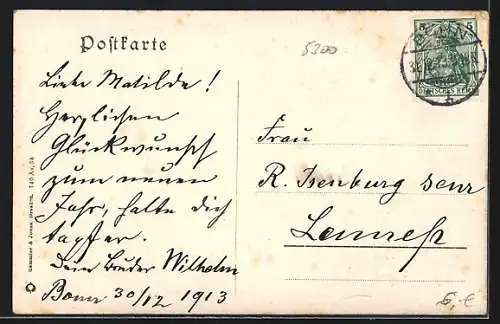 Postkarte
5300
5 5
DEUTSCHES REICH
Liebe Matilde!
Herzlichen
Glückwunsch
zum neuen
Jahr, halte dich
tapfer.
Dein Bruder Wilhelm
Bonn 30/12 1913
Frau
R. Isenburg senr
Lennep
6,-€